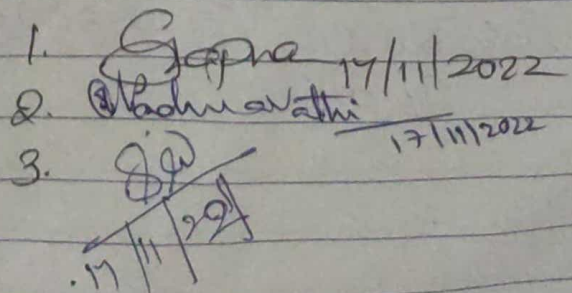 1. Sapna 17/11/2022
2. Madhuavathi
17/11/2022
3.
17/11/22